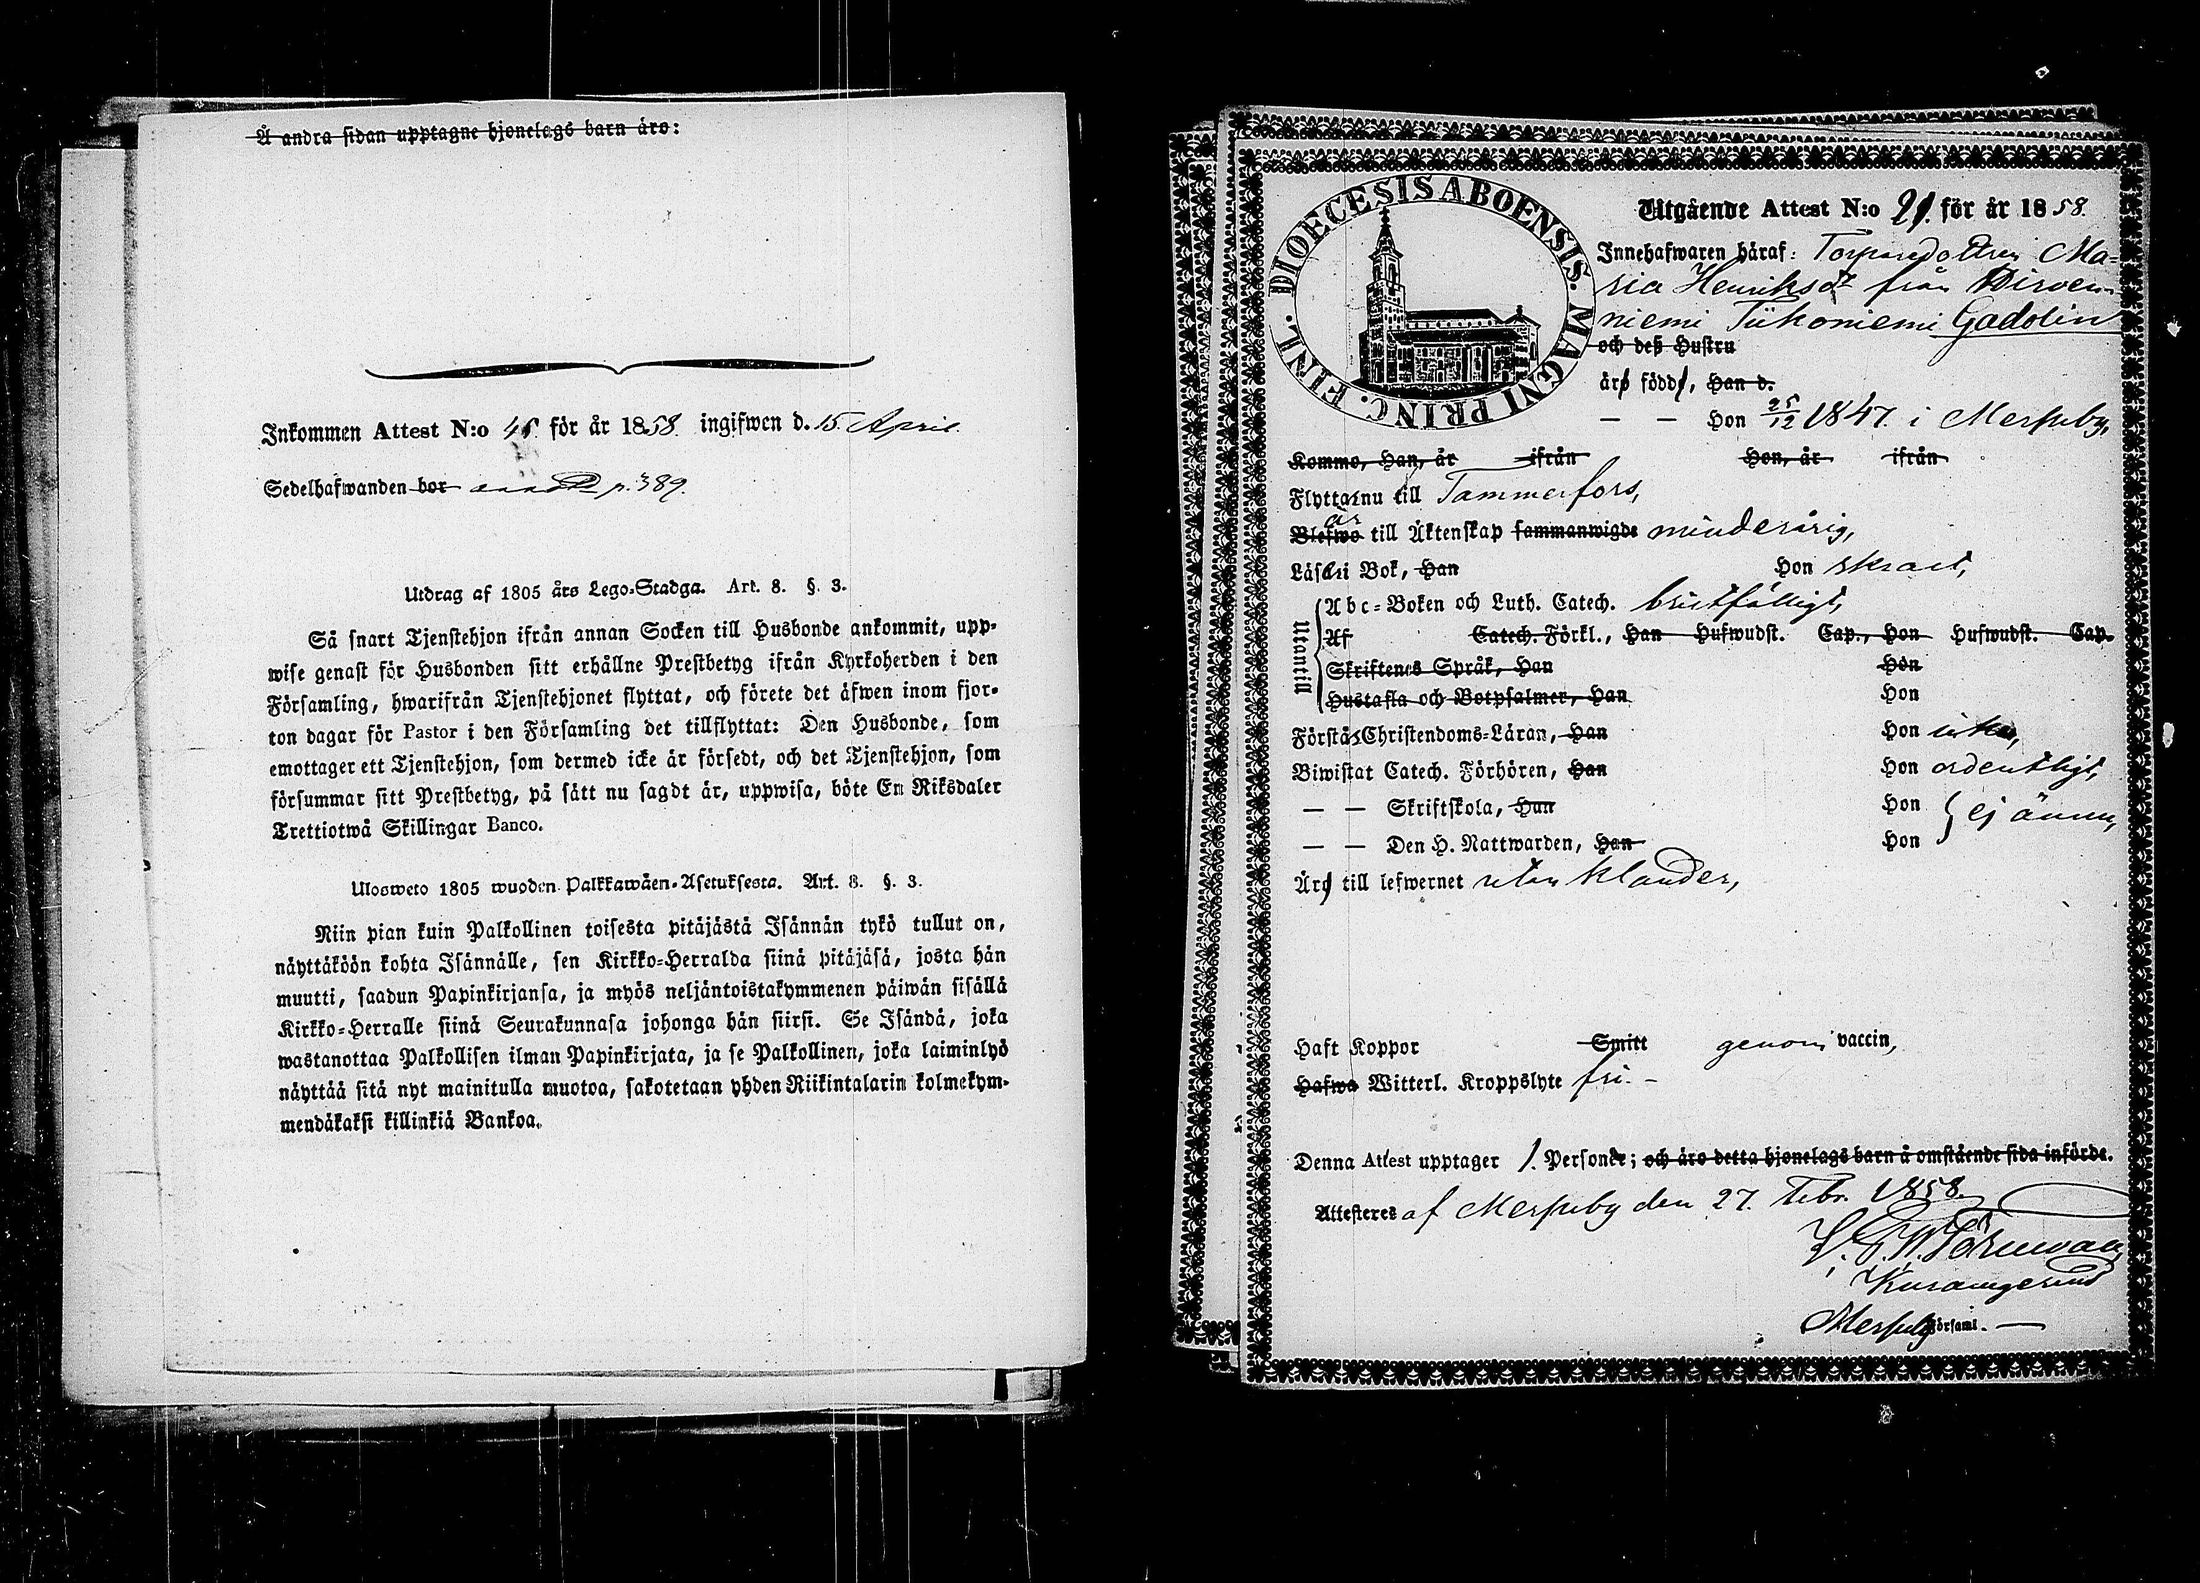 Å andra sidan upptagne hjonelags barn äro:
Inkommen Attest N:o 45 för år 1858. ingifwen d. 15. April.
Sedelhafwanden bor p. 389.
Utdrag af 1805 års Lego-Stadga. Art. 8. §. 3.
Så snart Tjenstehjon ifrån annan Socken till Husbonde ankommit, upp-
wise genast för Husbonden sitt erhållne Prestbetyg ifrån Kyrkoherden i den
Församling, hwarifrån Tjenstehjonet flyttat, och förete det äfwen inom fjor-
ton dagar för Pastor i den Församling det tillflyttat: Den Husbonde, som
emottager ett Tjenstehjon, som dermed icke är försedt, och det Tjenstehjon, som
försummar sitt Prestbetyg, på sätt nu sagdt är, uppwisa, böte En Riksdaler
Trettiotwå Skillingar Banco.
Ulosweto 1805 wuoden Palkkawäen-Asetuksesta. Art. 8. §. 3.
Niin pian kuin Palkollinen toisesta pitäjästä Isännän tykö tullut on,
näyttäköön kohta Isännälle, sen Kirkko-Herralda siinä pitäjäsä, josta hän
muutti, saadun Papinkirjansa, ja myös neljäntoistakymmenen päiwän sisällä
Kirkko-Herralle siinä Seurakunnasa johonga hän siirsi. Se Isändä, joka
wastanottaa Palkollisen ilman Papinkirjata, ja se Palkollinen, joka laiminlyö
näyttää sitä nyt mainitulla muotoa, sakotetaan yhden Riikintalarin kolmekym-
mendäkaksi killinkiä Bankoa.
DIOECESIS ABOENSIS. MAGNI PRINC. FINL.
Utgående Attest N:o 21. för år 1858.
Innehafwaren häraf: Torparedottren Ma-
ria Henriksdr från Hirven-
niemi Tiikoniemi Gadolin
och deß Hustru
äro födde, Han d.
— — Hon 25/12 1847. i Messuby,
Komma, Han, år ifrån Hon, år ifrån
Flyttar nu till Tammerfors,
är
Blefwo till Äktenskap sammanwigde minderårig,
Läser i Bok, Han Hon skrart,
Utantill
Abc-Boken och Luth. Catech. bristfälligt,
Af Catech. Förkl., Han Hufwudst. Cap., Hon Hufwudst. Cap.
Skriftenes Språk, Han Hon
Hustafla och Botpsalmer, Han Hon
Förstår Christendoms-Läran, Han Hon icke,
Biwistat Catech. Förhören, Han Hon ordentligt,
— — Skriftskola, Han Hon ej ännu,
— — Den H. Nattwarden, Han Hon
Äro till lefwernet utan klander,
Haft Koppor Smitt genom vaccin,
Hafwa Witterl. Kroppslyte fri. -
Denna Attest upptager 1. Personer; och äro detta hjonelags barn å omstående sida införde.
Attesteres af Messuby den 27. Febr. 1858.
Messuby Församl. —